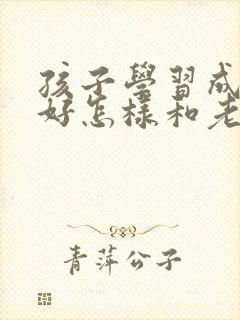 孩子學習成
好怎樣和老
青萍公子